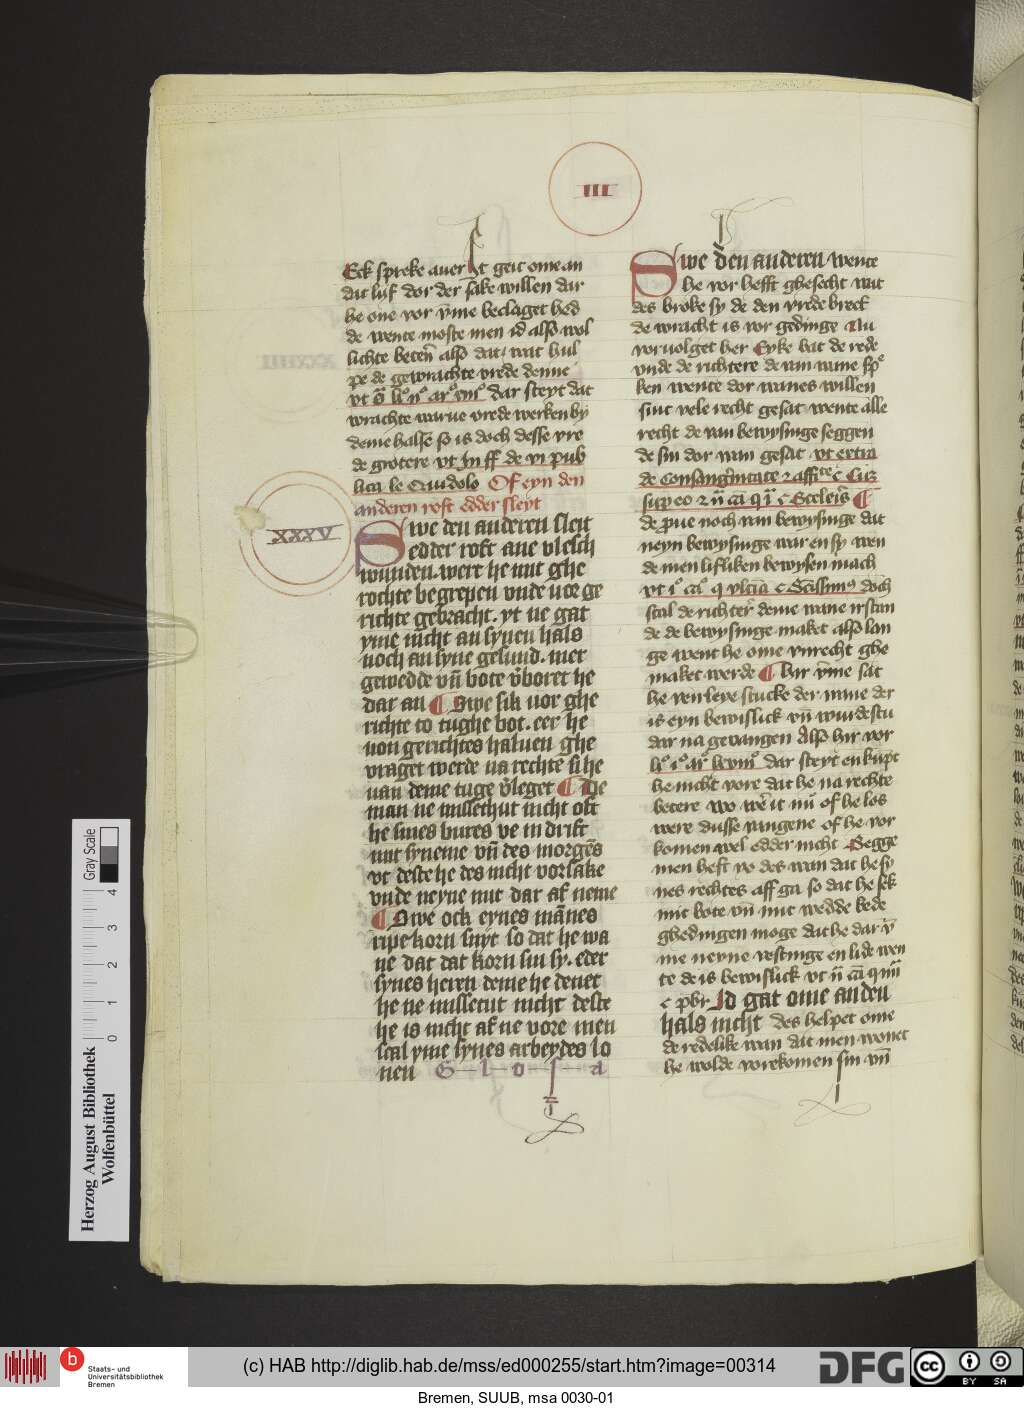 III
Eck spreke auer it geit ome an
dat lif dor der sake willen dar
he one vor yme beclaget hed
de wente moste men id also wol
lichte beten also dat wat hul
pe de gewrachte vrede denne
dar steyt dat
wrachte warue vrede werken by
deme halse so is doch desse vre
de grotere vt In ff de vi pub
lica le Of eyn den
anderen roft edder sleyt
XXXV
Swe den anderen sleit
edder roft ane vleisch
wunden. wert he mit ghe
rochte begrepen vnde uore ge
richte gebracht. yt ne gat
yme nicht an synen hals
noch an syne gesund. met
gewedde vñ bote v̄boret he
dat all ¶ Swe sik uor ghe
richte to tughe bot. eer he
uon gerichtes haluen ghe
vraget werde na rechte si he
uan deme tuge v̄leget ¶ De
man ne misse hut nicht oft
he sines bures ve in drift
mit syneme vñ des morgēs
vt deste he des nicht vorsake
vnde neyne nut dar af neme
¶ Swe ock eynes mānes
ripe korn snyt so dat he wa
ne dat dat korn sin sy. eder
synes heren deme he denet
he ne missetut nicht deste
he is nicht af ne vore men
scal yme synes arbeydes lo
nen G l o s a
Swe den anderen wente
he vor hefft ghesecht wat
des broke sy de den vrede breck
de wracht is vor gedinge Nu
voruolget her Eyke bat de rede
vnde de richtere de van wane sp
ken wente dor wanes willen
sint vele recht gesat wente alle
recht de van bewysinge seggen
de sin dor wan gesat vt extra
de
sup eo
de pue noch van bewysinge dat
neyn bewysinge waren sy wen
de men lifliken bewysen mach
vt doch
scal de richter deme wane irstan
de de bewysinge maket also lan
ge went he ome vnrecht ghe
maket werde ¶ Hir yme sat
he venleye stucke der wane der
is eyn bewislick vñ wurdestu
dar na gevangen Also hir vor
dar steyt en kupt
he nicht vore dat he na rechte
betere wo wer it nu of he los
were dusse vangene of he vor
komen wel edder nicht Segge
men heft vo des wan dat he sy
nes rechtes aff ga so dat he sek
mit bote vñ mit wedde bede
ghedingen moge dat he dar ȳ
me neyne vestinge en lide wen
te de is bewislick vt
Id gat ome an den
hals nicht des helpet ome
de redelike wan dat men wonet
he wolde vorekomen sin vñ
Herzog August Bibliothek
Wolfenbüttel
0 1 2 3 4
Gray Scale
b
Staats- und
Universitätsbibliothek
Bremen
(c) HAB http://diglib.hab.de/mss/ed000255/start.htm?image=00314
DFG
cc BY SA
Bremen, SUUB, msa 0030-01